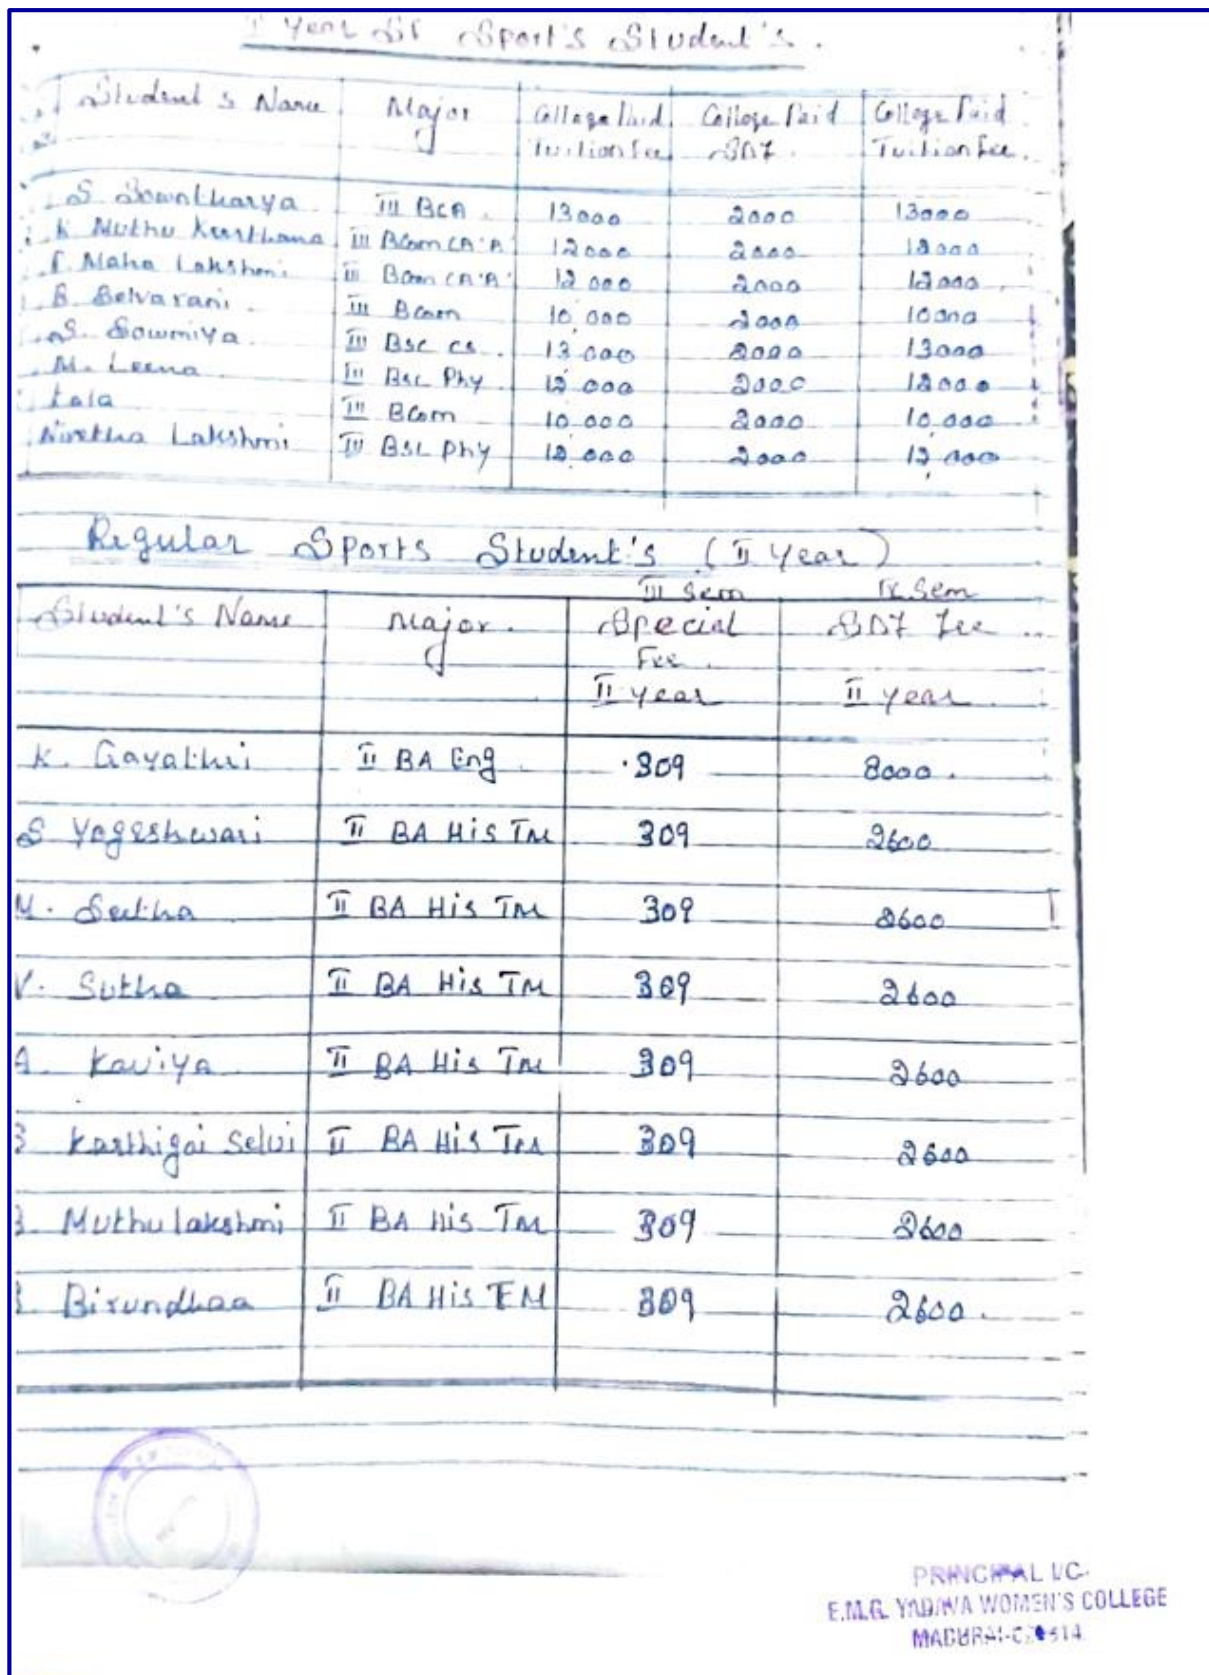 Year SF Sport's Student's.
Student's Name Major College Paid Tuition Fee College Paid SDF. College Paid Tuition Fee.
S. Sowntharya III BCA. 13000 2000 13000
K Muthu Keerthana III BCom CA 'A' 12000 2000 12000
P. Maha Lakshmi III BCom CA 'A' 12 000 2000 12000
B Selvarani III BCom 10,000 2000 10000
S. Sowmiya III BSC CS. 13 000 2000 13000
M. Leena III BSC Phy 12 000 2000 12000
Kala III BCom 10 000 2000 10,000
Lakshmi III BSC Phy 12,000 2000 12,000
Regular Sports Student's (II Year)
III Sem IV Sem
Student's Name Major. Special SDF Fee
Fee.
II Year II Year
K. Gayathri II BA Eng 309 8000.
S Yogeshwari II BA His TM 309 2600
M. Seetha II BA His TM 309 2600
V. Sutha II BA His TM 309 2600
A. Kaviya II BA His TM 309 2600
Karthigai Selvi II BA His TM 309 2600
Muthulakshmi II BA His TM 309 2600
Birundhaa II BA His EM 309 2600.
PRINCIPAL I/C.
E.M.G. YADAVA WOMEN'S COLLEGE